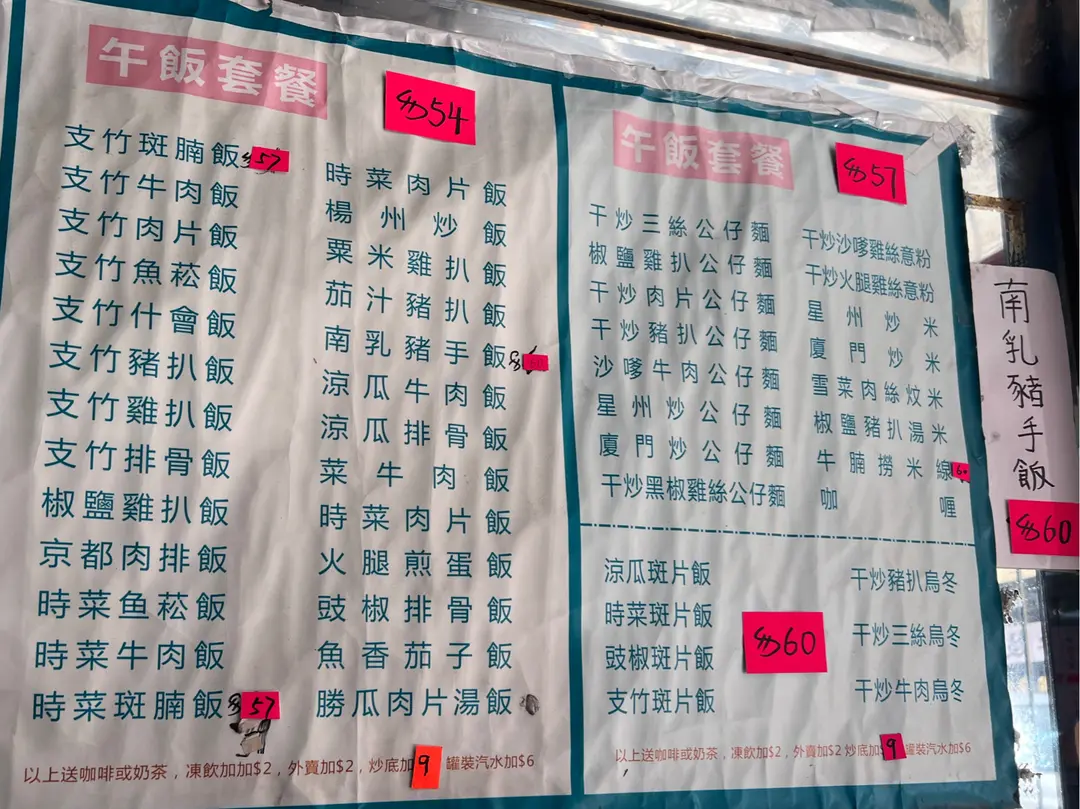 午飯套餐
$54
支竹斑腩飯 $57
支竹牛肉飯
支竹肉片飯
支竹魚菘飯
支竹什會飯
支竹豬扒飯
支竹雞扒飯
支竹排骨飯
椒鹽雞扒飯
京都肉排飯
時菜鱼菘飯
時菜牛肉飯
時菜斑腩飯 $57
時菜肉片飯
楊州炒飯
粟米雞扒飯
茄汁豬扒飯
南乳豬手飯 $60
涼瓜牛肉飯
涼瓜排骨飯
菜牛肉飯
時菜肉片飯
火腿煎蛋飯
豉椒排骨飯
魚香茄子飯
勝瓜肉片湯飯
以上送咖啡或奶茶，凍飲加加$2，外賣加$2，炒底加9 罐裝汽水加$6
午飯套餐
$57
干炒三絲公仔麵
椒鹽雞扒公仔麵
干炒肉片公仔麵
干炒豬扒公仔麵
沙嗲牛肉公仔麵
星州炒公仔麵
廈門炒公仔麵
干炒黑椒雞絲公仔麵
干炒沙嗲雞絲意粉
干炒火腿雞絲意粉
星州炒米
廈門炒米
雪菜肉絲炆米
椒鹽豬扒湯米
牛腩撈米線
咖喱
涼瓜斑片飯
時菜斑片飯
豉椒斑片飯
支竹斑片飯
$60
干炒豬扒烏冬
干炒三絲烏冬
干炒牛肉烏冬
以上送咖啡或奶茶，凍飲加$2，外賣加$2 炒底加$9 罐裝汽水加$6
南乳豬手飯
$60